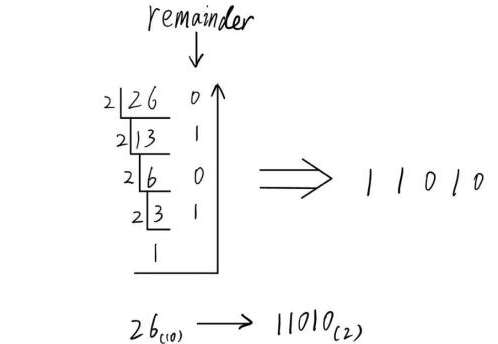 remainder
2 26 0
2 13 1
2 6 0
2 3 1
1
1 1 0 1 0
26(10) → 11010(2)